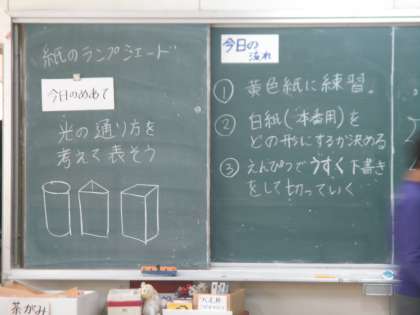 紙のランプシェード
今日のめあて
光の通り方を
考えて表そう
今日の
流れ
① 黄色紙に練習。
② 白紙(本番用)を
どの形にするか決める
③ えんぴつでうすく下書き
をして切っていく
茶がみ